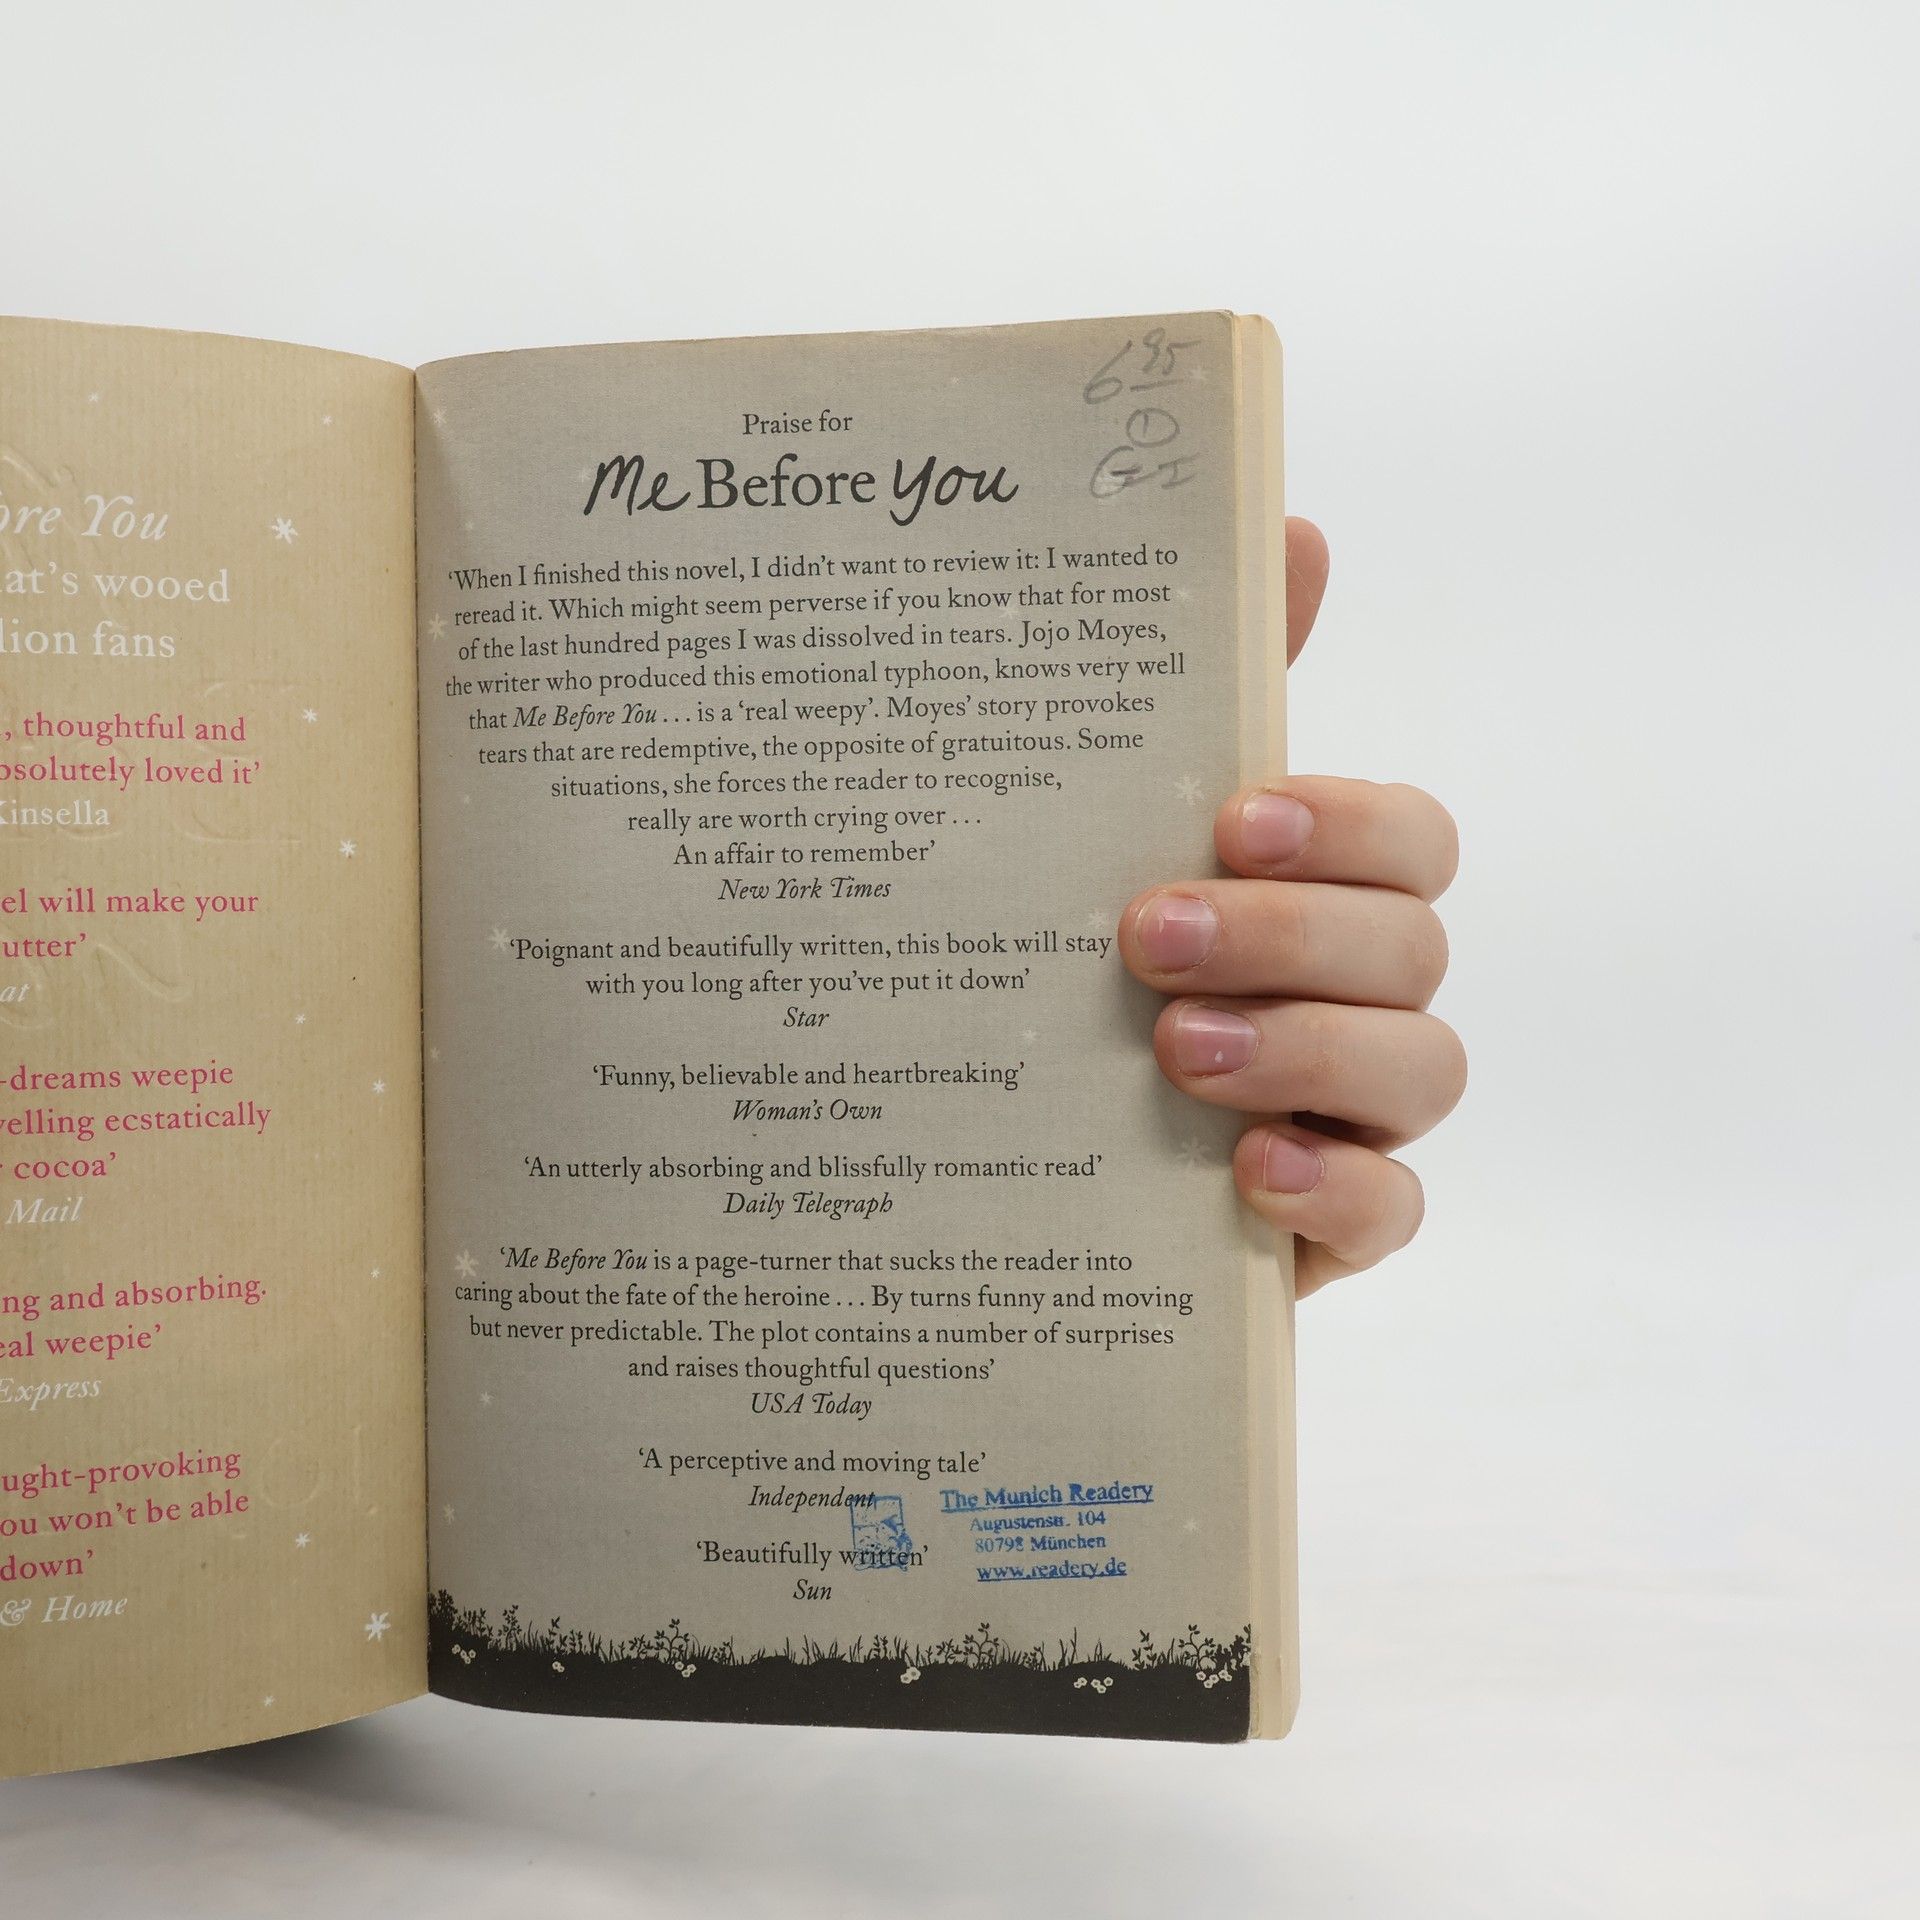 ore You
at's wooed
lion fans
, thoughtful and
bsolutely loved it'
Kinsella
el will make your
utter'
at
-dreams weepie
velling ecstatically
r cocoa'
Mail
ng and absorbing.
eal weepie'
Express
ught-provoking
ou won't be able
down'
& Home
6 95
1
Praise for
Me Before You
‘When I finished this novel, I didn’t want to review it: I wanted to
reread it. Which might seem perverse if you know that for most
of the last hundred pages I was dissolved in tears. Jojo Moyes,
the writer who produced this emotional typhoon, knows very well
that Me Before You . . . is a ‘real weepy’. Moyes’ story provokes
tears that are redemptive, the opposite of gratuitous. Some
situations, she forces the reader to recognise,
really are worth crying over . . .
An affair to remember’
New York Times
‘Poignant and beautifully written, this book will stay
with you long after you’ve put it down’
Star
‘Funny, believable and heartbreaking’
Woman’s Own
‘An utterly absorbing and blissfully romantic read’
Daily Telegraph
‘Me Before You is a page-turner that sucks the reader into
caring about the fate of the heroine . . . By turns funny and moving
but never predictable. The plot contains a number of surprises
and raises thoughtful questions’
USA Today
‘A perceptive and moving tale’
Independent
‘Beautifully written’
Sun
The Munich Readery
Augustenstr. 104
80798 München
www.readery.de